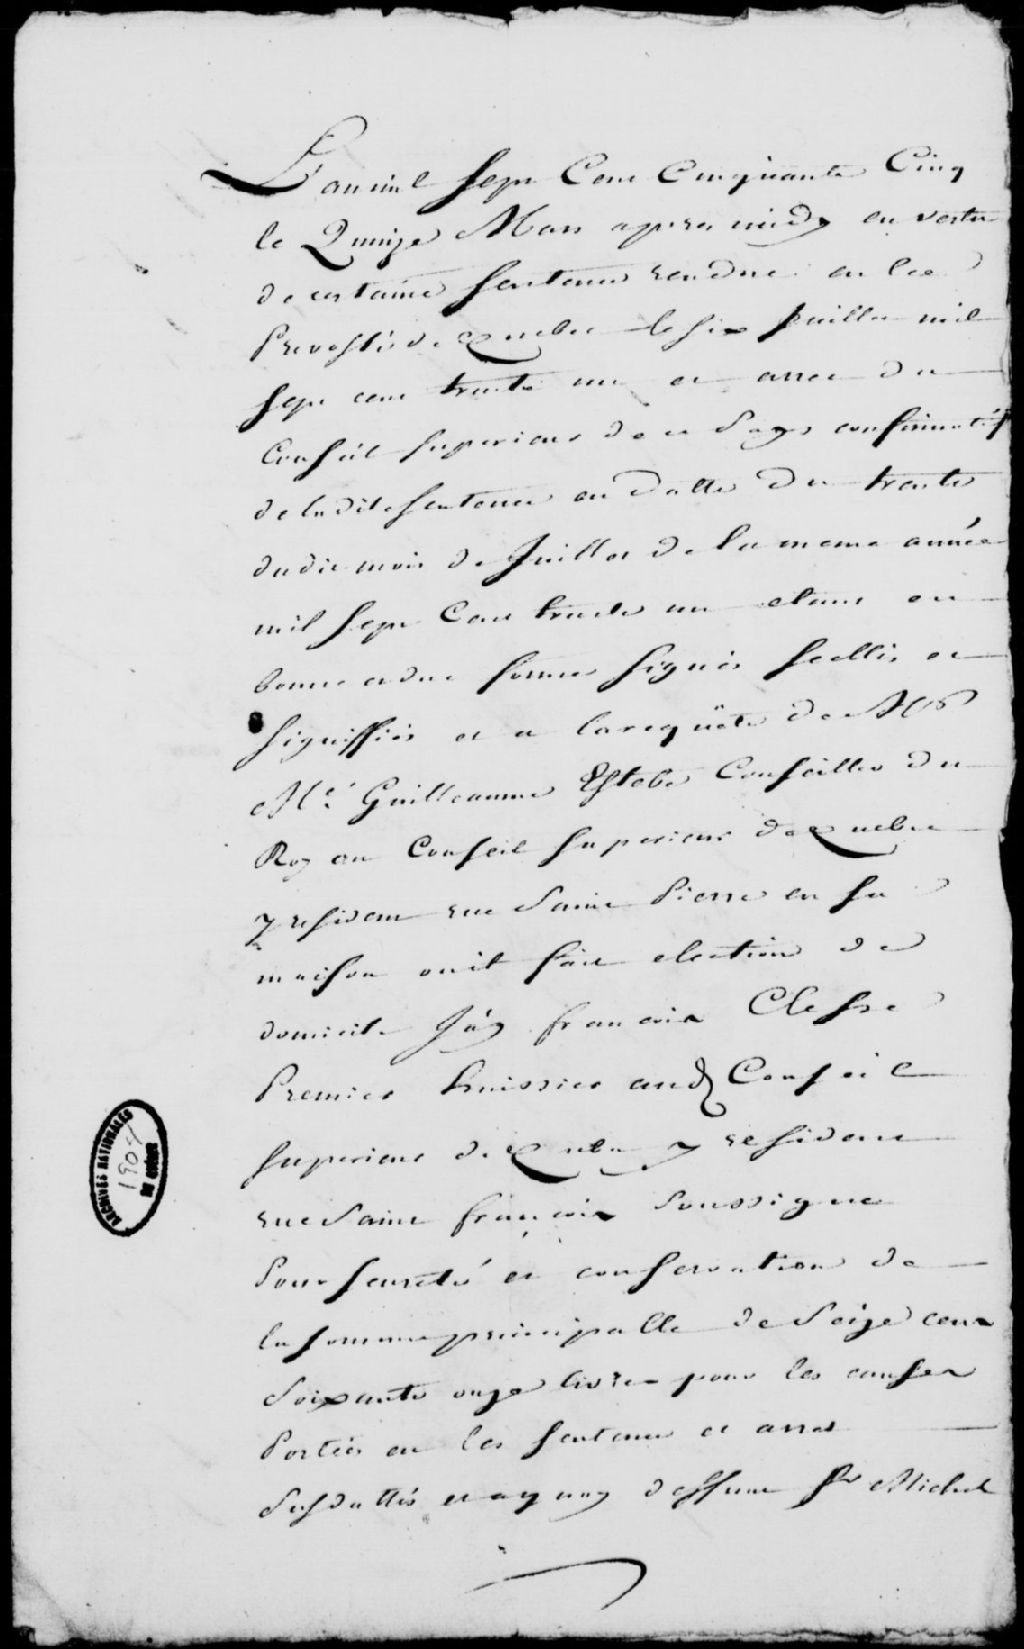 L'an mil sept Cent Cinquante Cinq
le Quinze Mars apres midy en vertu
de certaine sentence rendue en la
Prevosté de Quebec le six Juillet mil
sept cent trente un et arrest du
Conseil superieur de ce Pays confirmatif
de ladite sentence en datte du trente
dudit mois de Juillet de la meme année
mil sept Cent trente un etant en
bonne et due forme signés scellés et
signiffiés et a la requête de
Me. Guilleaume Estebe Conseiller du
Roy au Conseil superieur de Quebec
y residant rue Saint Pierre en sa
maison ou il fait election de
domicile J'ay francois Clesse
Premier huissier aud Conseil
superieur de Quebec y residant
rue Saint françois Soussigné
Pour sureté et conservation de
la somme principalle de Seize cent
Soixante onze livres pour les causes
Portées en les sentence et arrest
Susdattés deffunt Sr Michel
ARCHIVES NATIONALES
1904
DU QUÉBEC